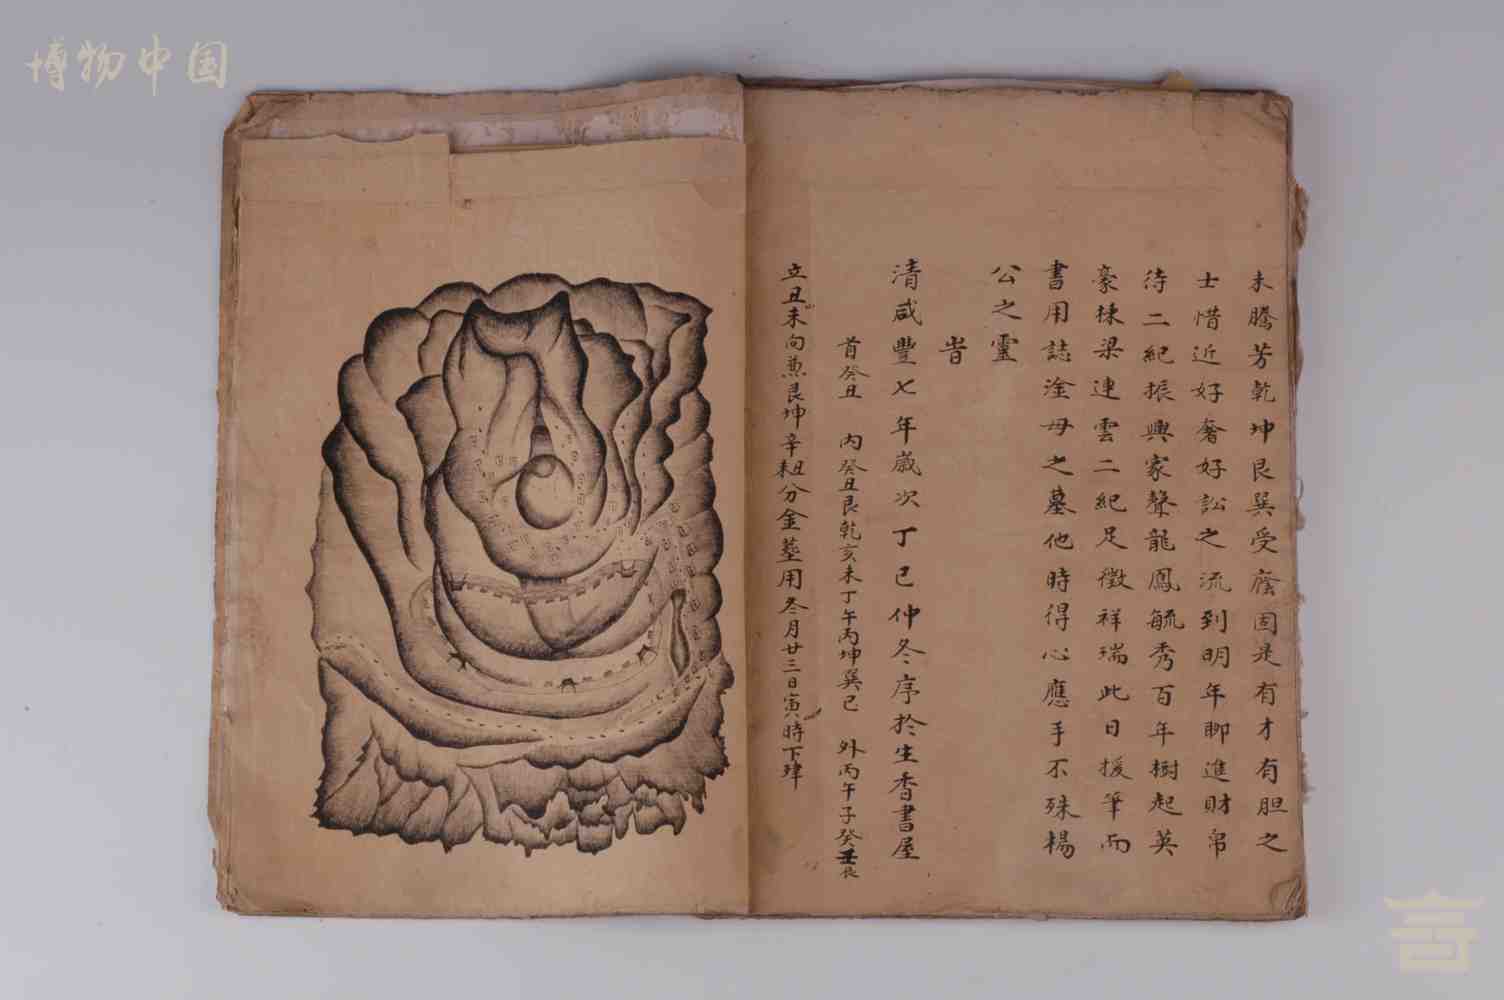 博物中国
未騰芳乾坤艮巽受廕固是有才有胆之
士惜近好奢好訟之流到明年聊進財帛
待二紀振興家聲龍鳳毓秀百年樹起英
豪棟梁連雲二紀足徵祥瑞此日援筆而
書用誌淦母之墓他時得心應手不殊楊
公之靈
旹
清咸豐七年歲次丁已仲冬序於生香書屋
首癸丑 内癸丑艮乾亥未丁午丙坤巽已 外丙午子癸壬艮
立丑未向兼艮坤辛丑辛未分金塟用冬月廿三日寅時下肂